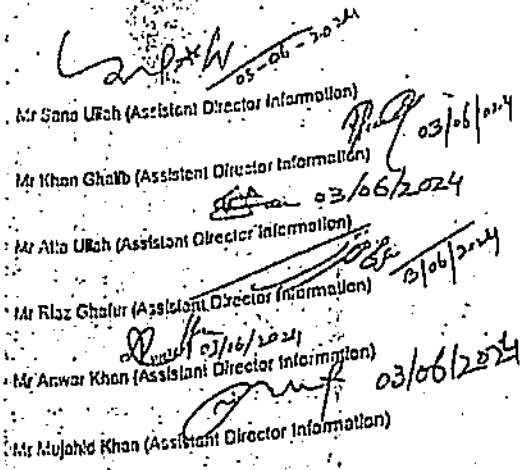 03-06-2024
Mr Sana Ullah (Assistant Director Information)
03/06/2024
Mr Khan Ghalib (Assistant Director Information)
03/06/2024
Mr Atta Ullah (Assistant Director Information)
3/06/2024
Mr Riaz Ghafur (Assistant Director Information)
03/06/2024
Mr Anwar Khan (Assistant Director Information)
03/06/2024
Mr Mujahid Khan (Assistant Director Information)